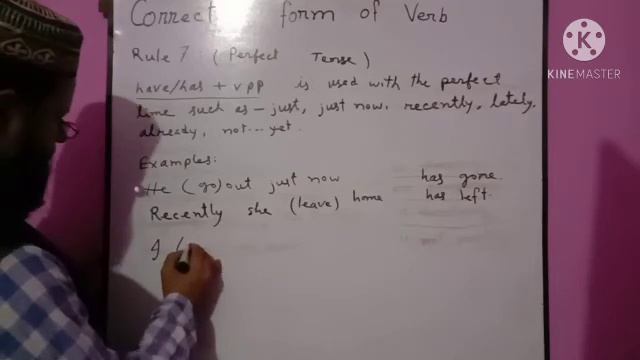 Correct form of Verb
Rule 7: (Perfect Tense)
have/has + vpp is used with the perfect
time such as - just, just now, recently, lately,
already, not... yet.
Examples:
He (go) out just now has gone.
Recently she (leave) home has left.
I (
KINEMASTER